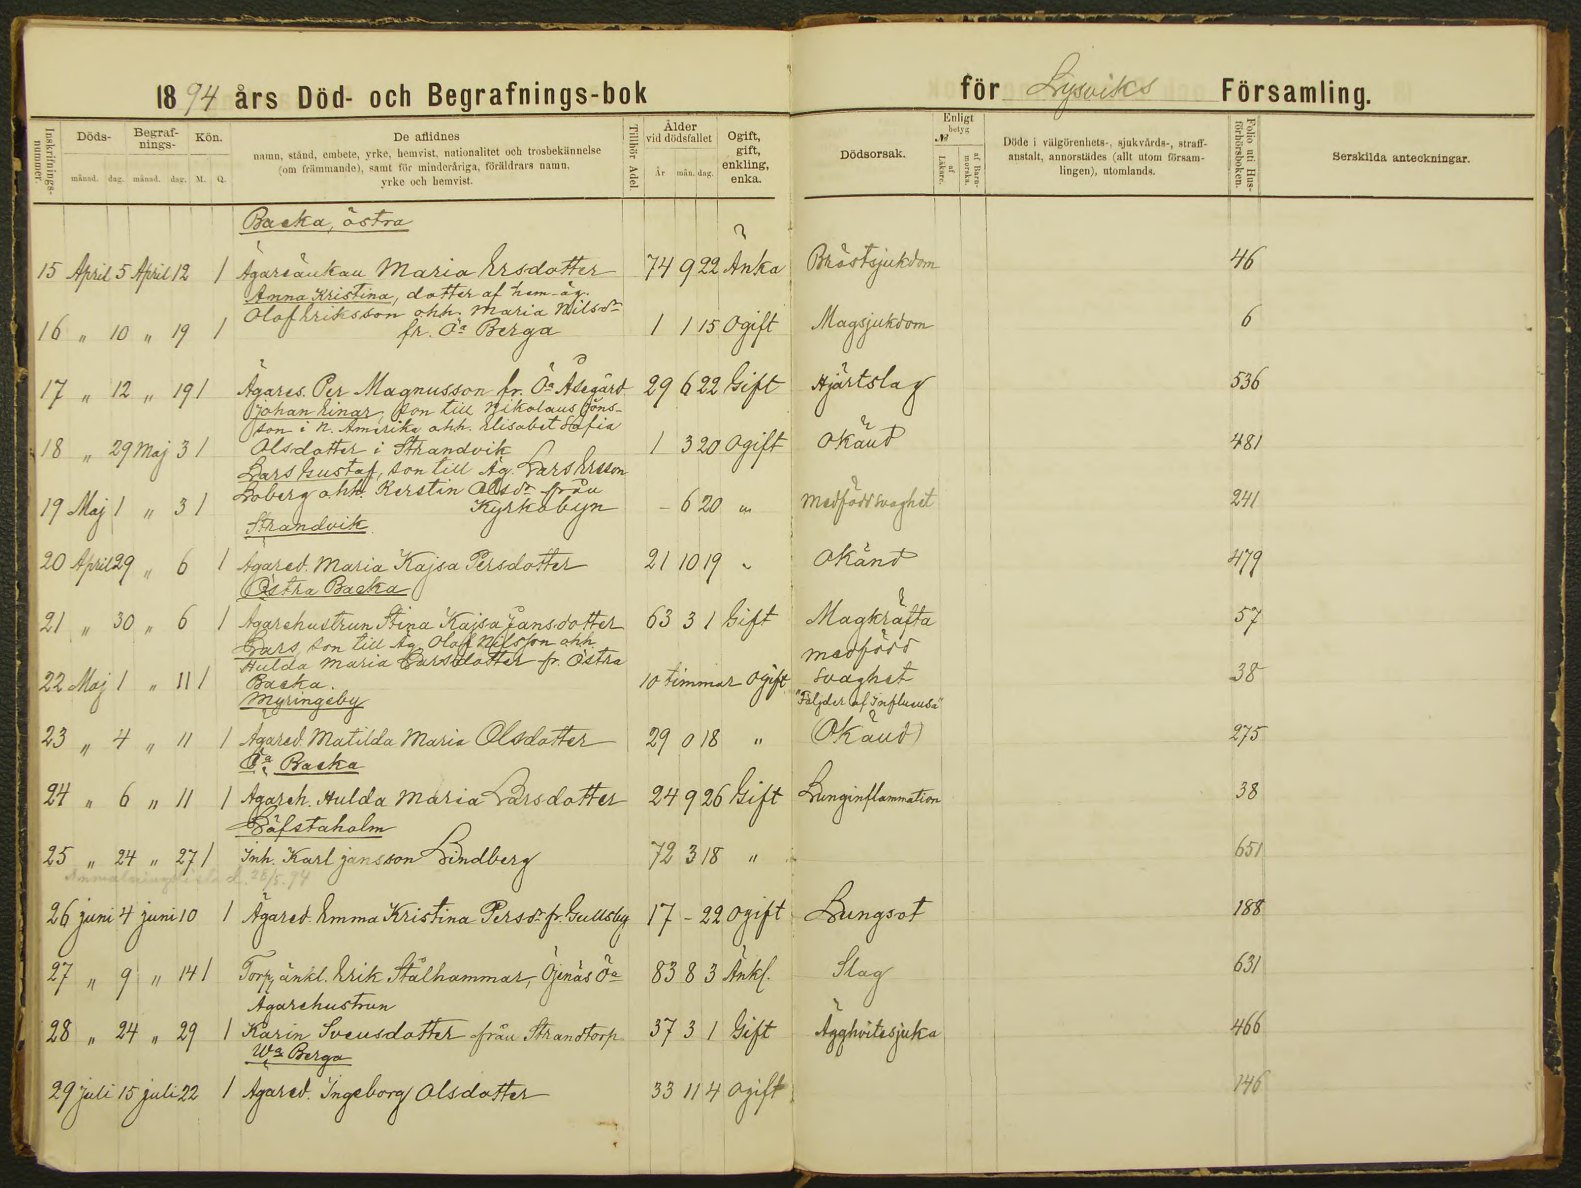 1894 års Död- och Begrafnings-bok för Lysviks Församling.
Inskrifnings-nummer.
Döds-
månad. dag.
Begraf-nings-
månad. dag.
Kön.
M. Q.
De aflidnes
namn, stånd, embete, yrke, hemvist, nationalitet och trosbekännelse
(om främmande), samt för minderåriga, föräldrars namn,
yrke och hemvist.
Tillhör Adel.
Ålder
vid dödsfallet
År mån. dag.
Ogift,
gift,
enkling,
enka.
Dödsorsak.
Enligt
betyg
№
af Läkare.
af Barn-morska.
Döde i välgörenhets-, sjukvårds-, straff-
anstalt, annorstädes (allt utom försam-
lingen), utomlands.
Folio uti Hus-förhörsboken.
Serskilda anteckningar.
Backa, östra
15 April 5 April 12 1 Ägareänkan Maria Ersdotter 74 9 22 Änka Bröstsjukdom 46
Anna Kristina, dotter af hem.äg.
Olof Eriksson ohh. Maria Nilsdr
16 " 10 " 19 1 fr. Öa Berga 1 1 15 Ogift Magsjukdom 6
17 " 12 " 19 1 Ägares. Per Magnusson fr. Öa Åsegård 29 6 22 Gift Hjärtslag 536
Johan Einar, son till Nikolaus Jöns-
son i N. Amerika ohh. Elisabet Sofia
18 " 29 Maj 3 1 Olsdotter i Strandvik 1 3 20 Ogift Okänd 481
Lars Gustaf, son till Äg. Lars Ersson
Loberg ohh Kerstin Olsdr från
19 Maj 1 " 3 1 Kyrkobyn - 6 20 " Medfödd svaghet 241
Strandvik
20 April 29 " 6 1 Ägared. Maria Kajsa Persdotter 21 10 19 " Okänd 479
Östra Backa
21 " 30 " 6 1 Ägarehustrun Stina Kajsa Jansdotter 63 3 1 Gift Magkräfta 57
Lars, son till Äg. Olof Nilsson ohh
Hulda Maria Larsdotter fr. Östra medfödd
22 Maj 1 " 11 1 Backa. 10 timmar Ogift svaghet 38
Myringeby "Följder af Influensa"
23 " 4 " 11 1 Ägared. Matilda Maria Olsdotter 29 0 18 " (Okänd) 275
Öa Backa
24 " 6 " 11 1 Ägareh. Hulda Maria Larsdotter 24 9 26 Gift Lunginflammation 38
Löfstaholm
25 " 24 " 27 1 Inh. Karl Jansson Lindberg 72 3 18 " 651
26 juni 4 juni 10 1 Ägared. Emma Kristina Persdr fr. Gullsby 17 - 22 Ogift Lungsot 188
27 " 9 " 14 1 Torp, änkl. Erik Stålhammar, Öjenäs Öa 83 8 3 Änkl. Slag 631
Ägarehustrun
28 " 24 " 29 1 Karin Svensdotter från Strandtorp 37 3 1 Gift Ägghvitesjuka 466
Wa Berga
29 juli 15 juli 22 1 Ägared. Ingeborg Olsdotter 33 11 4 Ogift 146